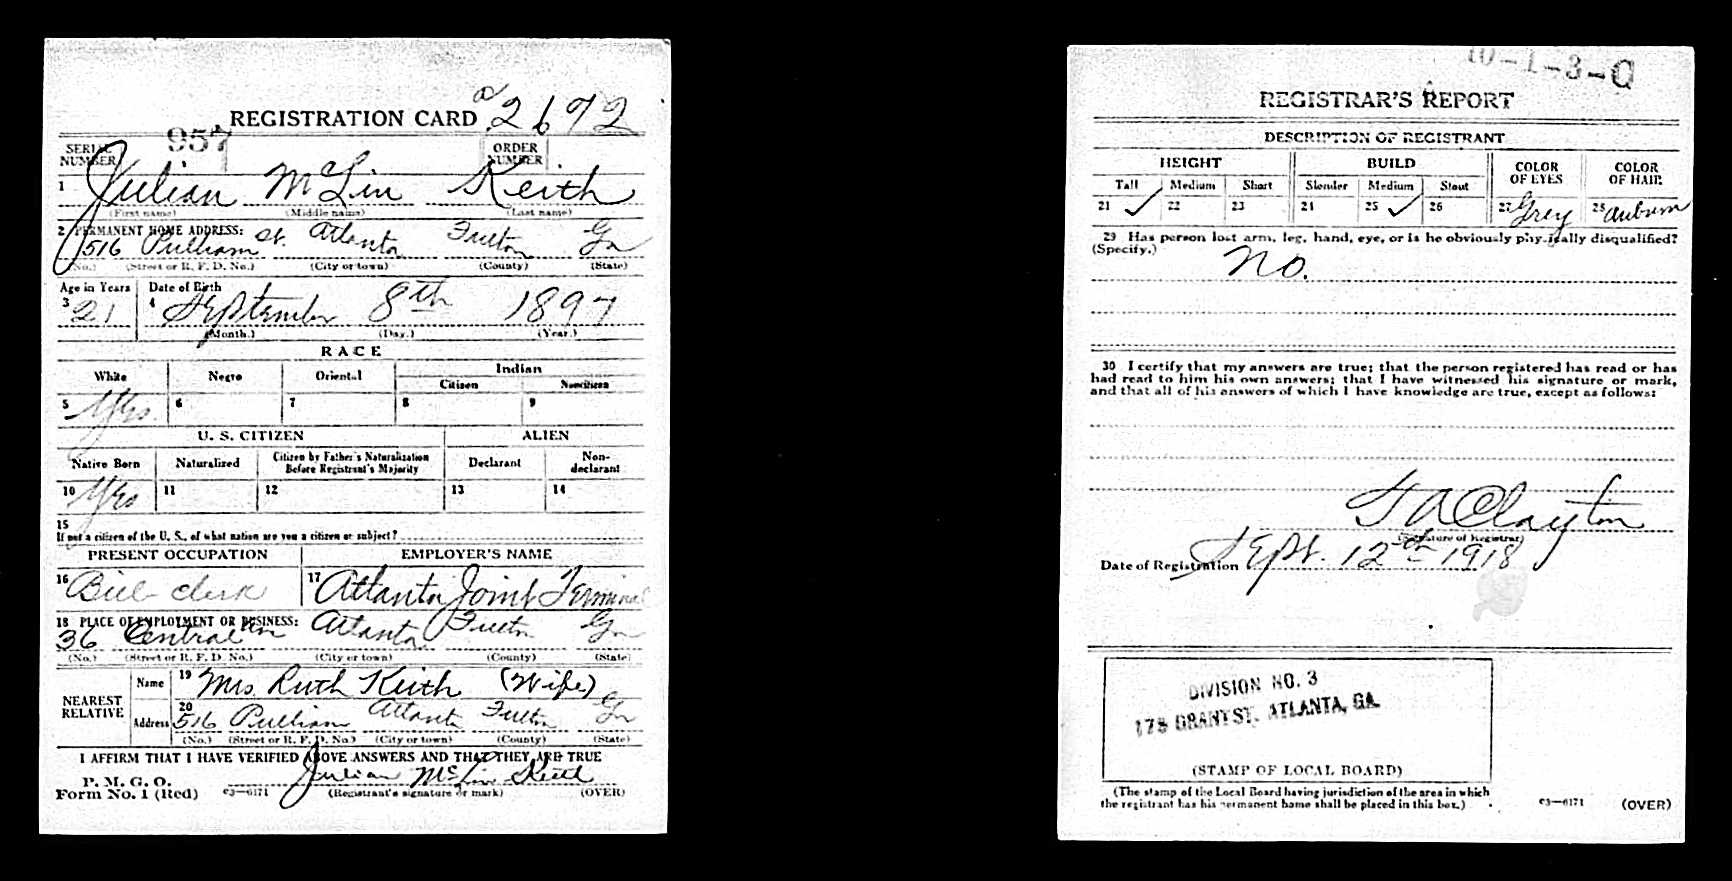 REGISTRATION CARD
a 2672
SERIAL NUMBER 957 ORDER NUMBER
1 Julian McLin Keith
(First name) (Middle name) (Last name)
2 PERMANENT HOME ADDRESS:
516 Pulliam St. Atlanta Fulton Ga
(No.) (Street or R. F. D. No.) (City or town) (County) (State)
Age in Years Date of Birth
3 21 4 September 8th 1897
(Month.) (Day.) (Year.)
RACE
White Negro Oriental Indian
Citizen Noncitizen
5 Yes. 6 7 8 9
U. S. CITIZEN ALIEN
Native Born Naturalized Citizen by Father's Naturalization Before Registrant's Majority Declarant Non-declarant
10 Yes 11 12 13 14
15
If not a citizen of the U. S., of what nation are you a citizen or subject?
PRESENT OCCUPATION EMPLOYER'S NAME
16 Bill clerk 17 Atlanta Joint Terminal
18 PLACE OF EMPLOYMENT OR BUSINESS:
36 Central Av Atlanta Fulton Ga
(No.) (Street or R. F. D. No.) (City or town) (County) (State)
NEAREST RELATIVE
Name 19 Mrs. Ruth Keith (Wife)
Address 20 516 Pulliam Atlanta Fulton Ga
(No.) (Street or R. F. D. No.) (City or town) (County) (State)
I AFFIRM THAT I HAVE VERIFIED ABOVE ANSWERS AND THAT THEY ARE TRUE
P. M. G. O.
Form No. 1 (Red) c3—6171 Julian McLin Keith
(Registrant's signature or mark) (OVER)
10-1-3-C
REGISTRAR'S REPORT
DESCRIPTION OF REGISTRANT
HEIGHT BUILD COLOR OF EYES COLOR OF HAIR
Tall Medium Short Slender Medium Stout
21 ✓ 22 23 24 25 ✓ 26 27 Grey 28 auburn
29 Has person lost arm, leg, hand, eye, or is he obviously physically disqualified?
(Specify.) No.
30 I certify that my answers are true; that the person registered has read or has
had read to him his own answers; that I have witnessed his signature or mark,
and that all of his answers of which I have knowledge are true, except as follows:
Clayton
(Signature of Registrar)
Date of Registration Sept. 12th 1918
DIVISION NO. 3
175 GRANT ST. ATLANTA, GA.
(STAMP OF LOCAL BOARD)
(The stamp of the Local Board having jurisdiction of the area in which
the registrant has his permanent home shall be placed in this box.)
c3—6171 (OVER)